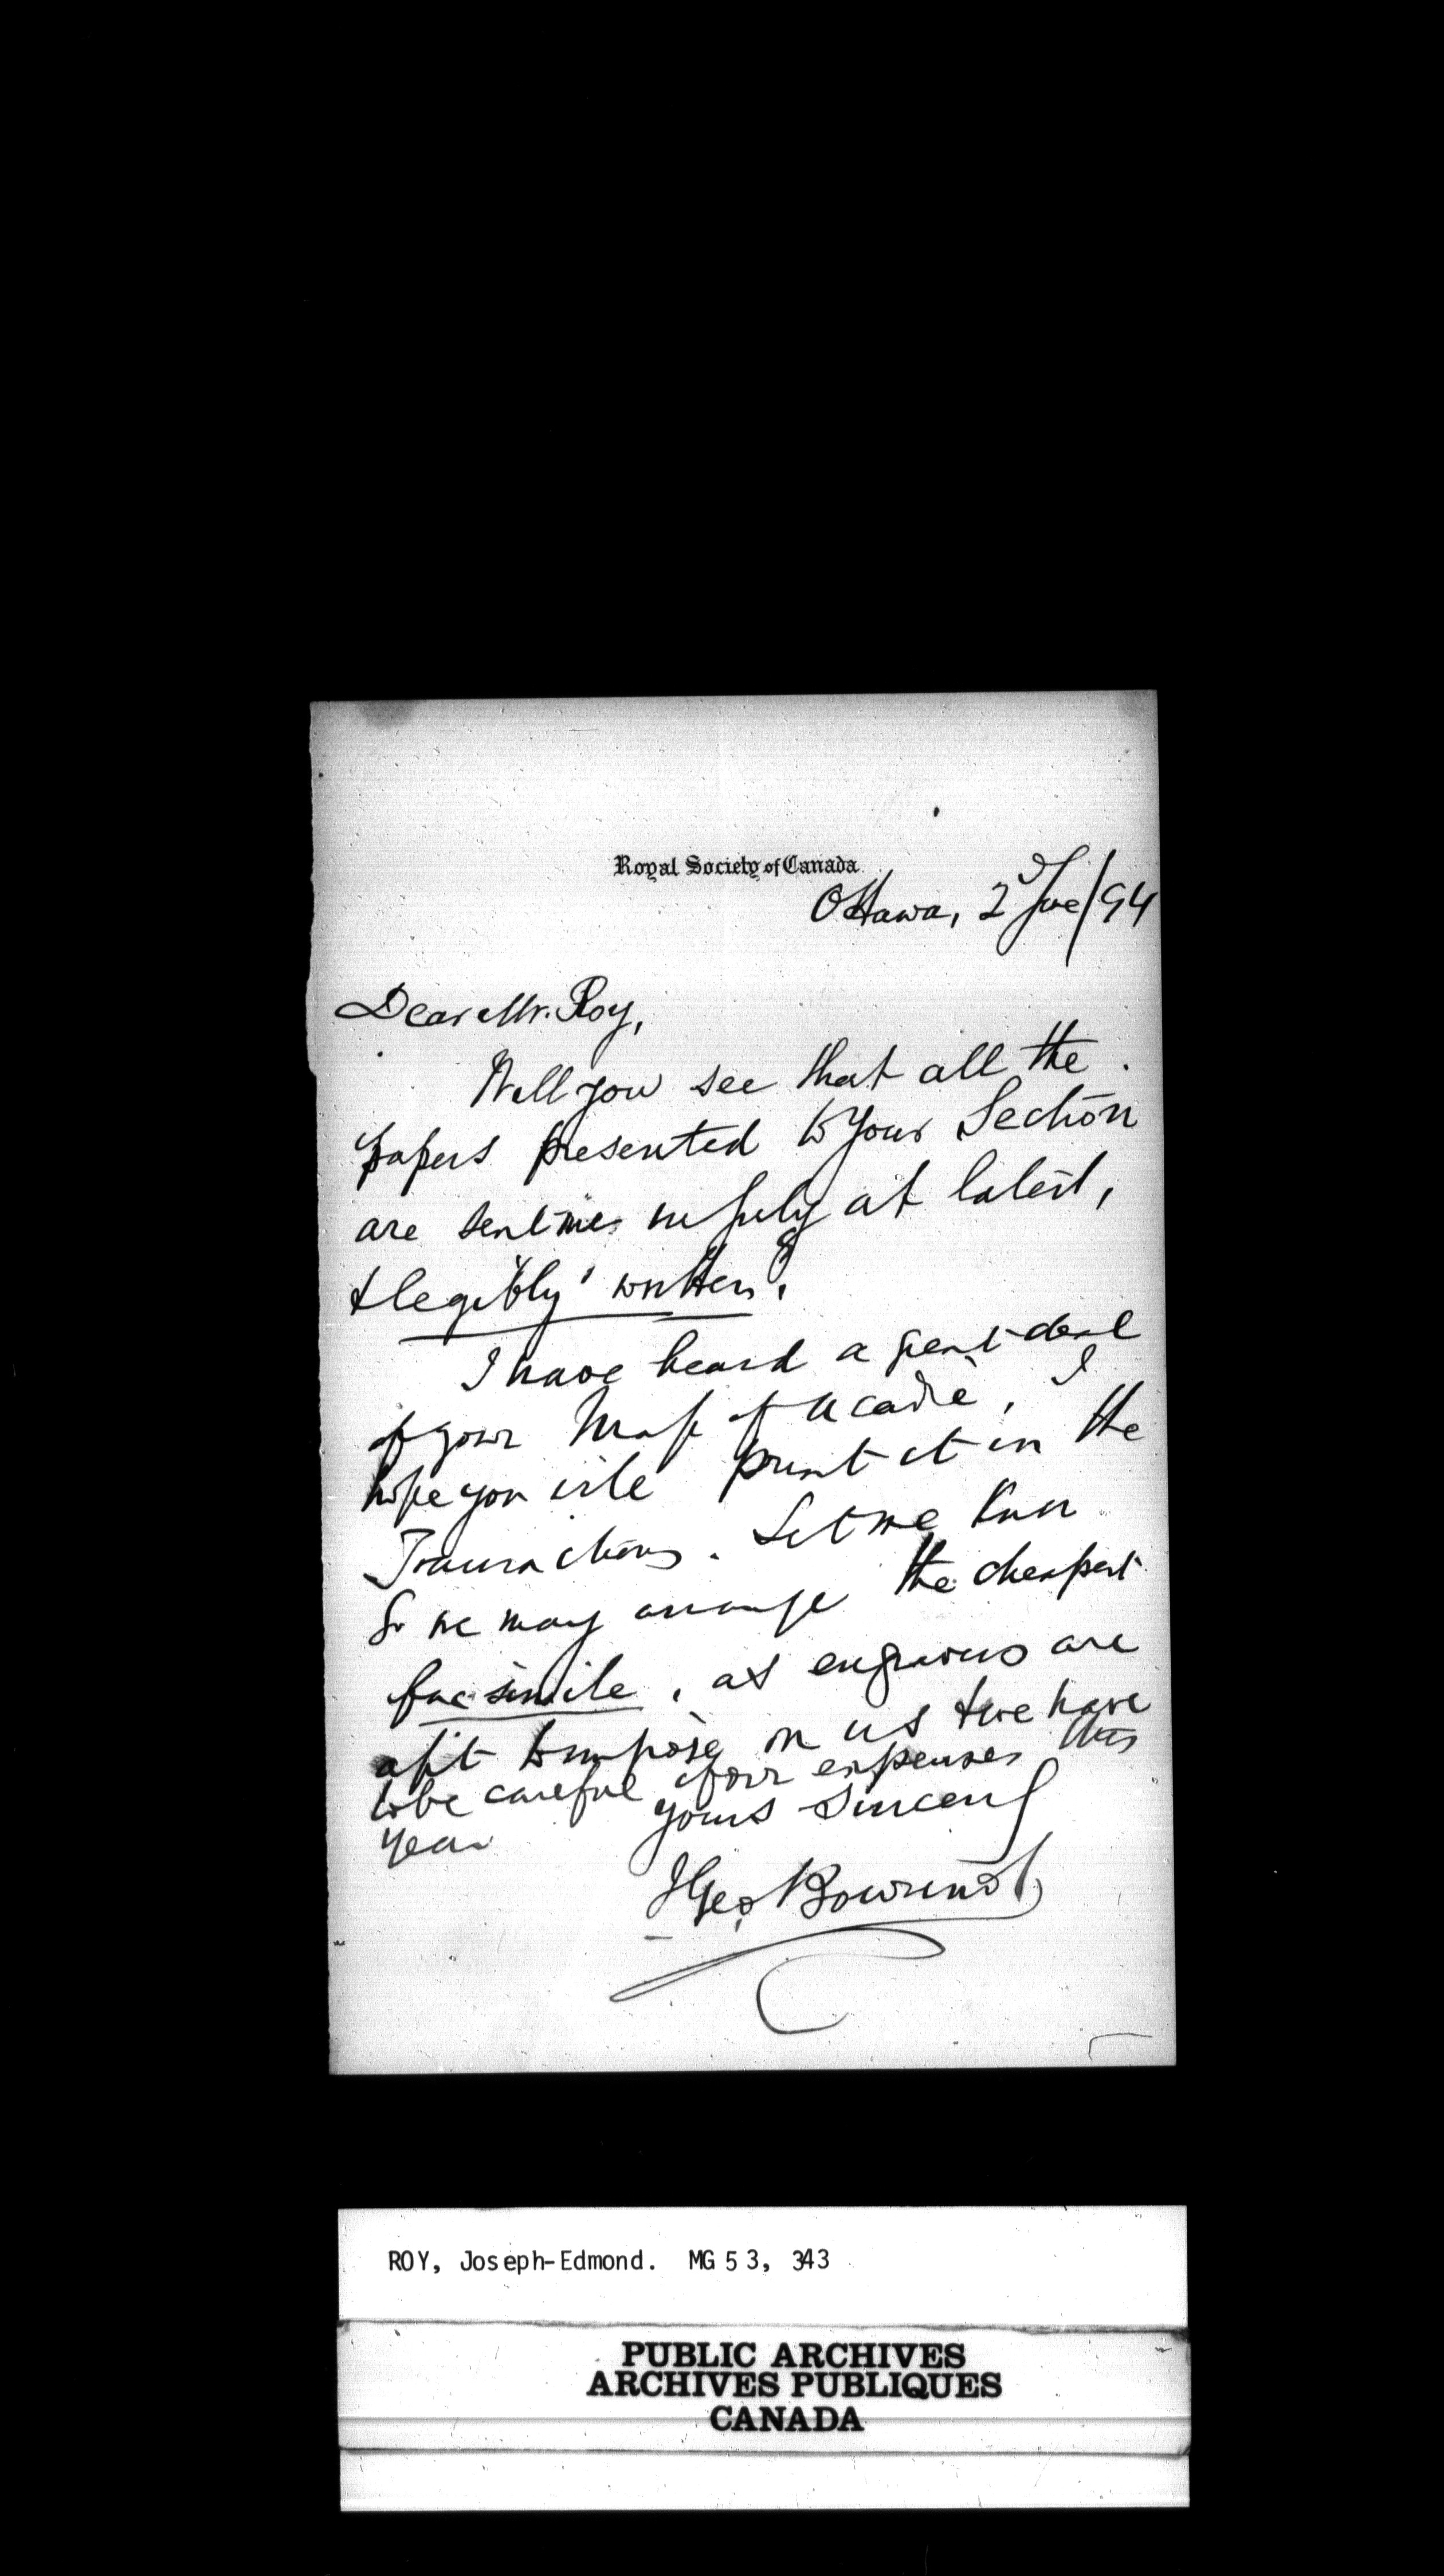 Royal Society of Canada
Ottawa, 2d June/94
Dear Mr. Roy,
Will you see that all the
papers presented to your Section
are sent me in July at latest,
& legibly written.
I have heard a great deal
of your Map of Acadie. I
hope you will print it in the
Transactions. Let me know
So we may arrange the cheapest
facsimile, as engravers are
apt to impose on us & we have
to be careful of our expenses this
year
Yours Sincerely
J Geo. Bourinot
ROY, Joseph-Edmond. MG 5 3, 343
PUBLIC ARCHIVES
ARCHIVES PUBLIQUES
CANADA